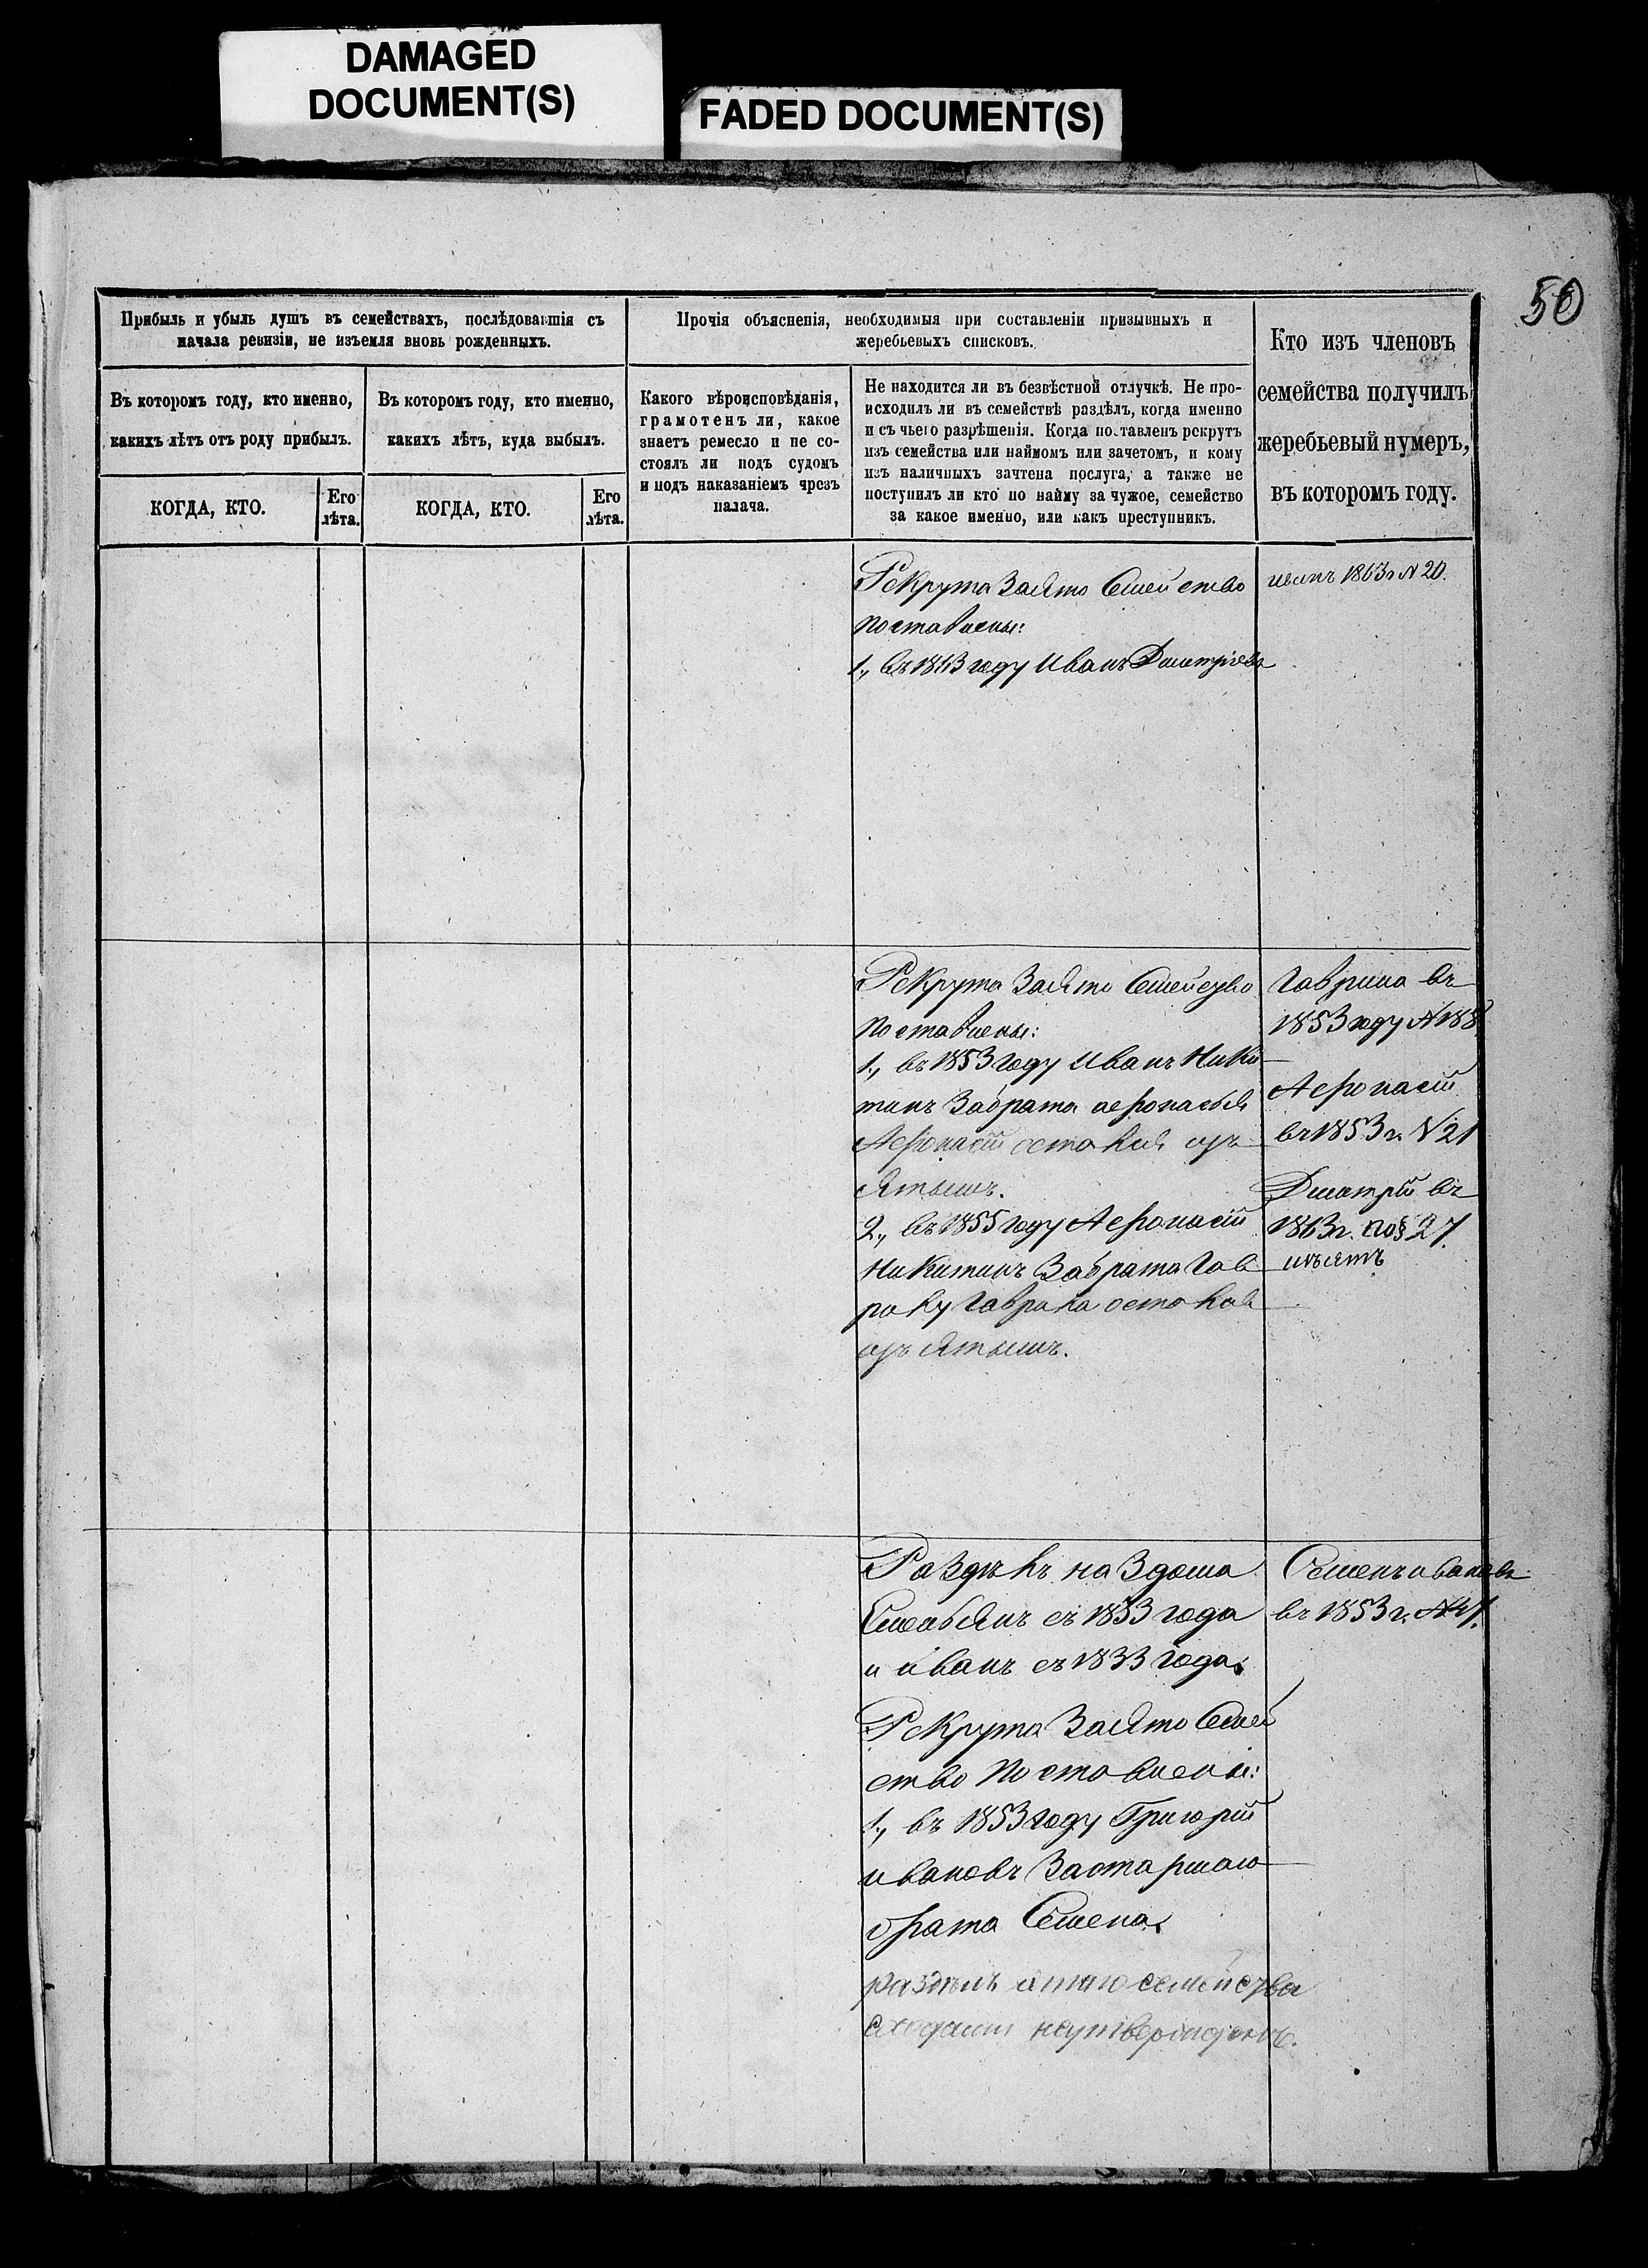 DAMAGED
DOCUMENT(S)
FADED DOCUMENT(S)
50
Прибыль и убыль душъ въ семействахъ, послѣдовавшія съ
начала ревизіи, не изъемля вновь рожденныхъ.
Въ которомъ году, кто именно,
какихъ лѣтъ отъ роду прибылъ.
КОГДА, КТО.
Его
лѣта.
Въ которомъ году, кто именно,
какихъ лѣтъ, куда выбылъ.
КОГДА, КТО.
Его
лѣта.
Прочія объясненія, необходимыя при составленіи призывныхъ и
жеребьевыхъ списковъ.
Какого вѣроисповѣданія,
грамотенъ ли, какое
знаетъ ремесло и не со-
стоялъ ли подъ судомъ
и подъ наказаніемъ чрезъ
палача.
Не находится ли въ безвѣстной отлучкѣ. Не про-
исходилъ ли въ семействѣ раздѣлъ, когда именно
и съ чьего разрѣшенія. Когда поставленъ рекрутъ
изъ семейства или наймомъ или зачетомъ, и кому
изъ наличныхъ зачтена послуга, а также не
поступилъ ли кто по найму за чужое, семейство
за какое именно, или какъ преступникъ.
Кто изъ членовъ
семейства получилъ
жеребьевый нумеръ,
въ которомъ году.
Рекрута За Это Семейство
поставлены:
1., въ 1813 году Иванъ Дмитріевъ
1863 г N 20.
Рекрута За Это Семейство
поставлены:
1., въ 1853 году Иванъ Ники
тинъ За брата
2., въ 1855 году
Никитинъ За брата Гав
Гаврила въ
1853 году N 188
въ 1853 г. N 21
Дмитрій въ
1863 г. 27.
Раздѣлъ на 3 дома
съ 1853 года
и иванъ съ 1833 года.
Рекрута За Это Семей
ство Поставлены:
1., въ 1853 году Григорій
ивановъ За старшаго
брата Семена.
раздѣлъ этого семейства
сходомъ неутвержденъ.
Семенъ ивановъ
въ 1853 г.